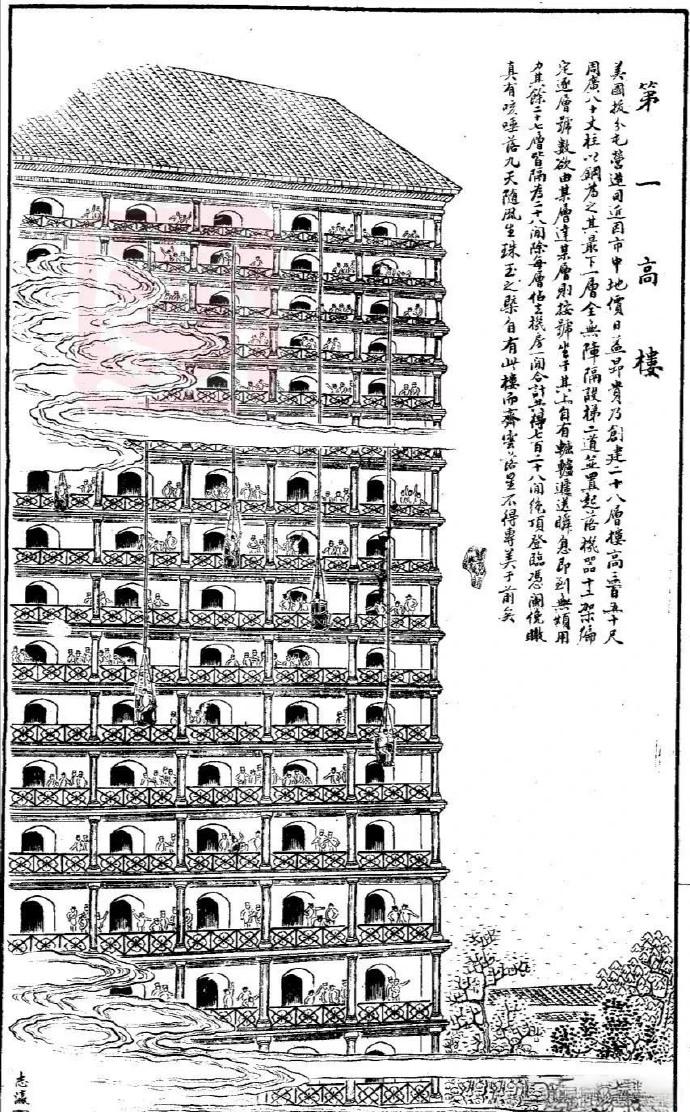 第一高樓
美國拔分毛營造司近因市中地價日益昂貴乃創建二十八層樓高三百五十尺
周廣八十丈柱以鋼為之其最下一層全無障隔設梯二道並置起落機器十二架編
定逐層號數欲由某層達某層則按號坐于其上自有轆轤遞送瞬息即到無煩用
力其餘二十七層皆隔為二十八間除每層佔去機房一間合計共得七百二十八間絶頂登臨憑闌俯瞰
真有咳唾落九天隨風生珠玉之槩自有此樓而齊雲落星不得專美于前矣
志瀛